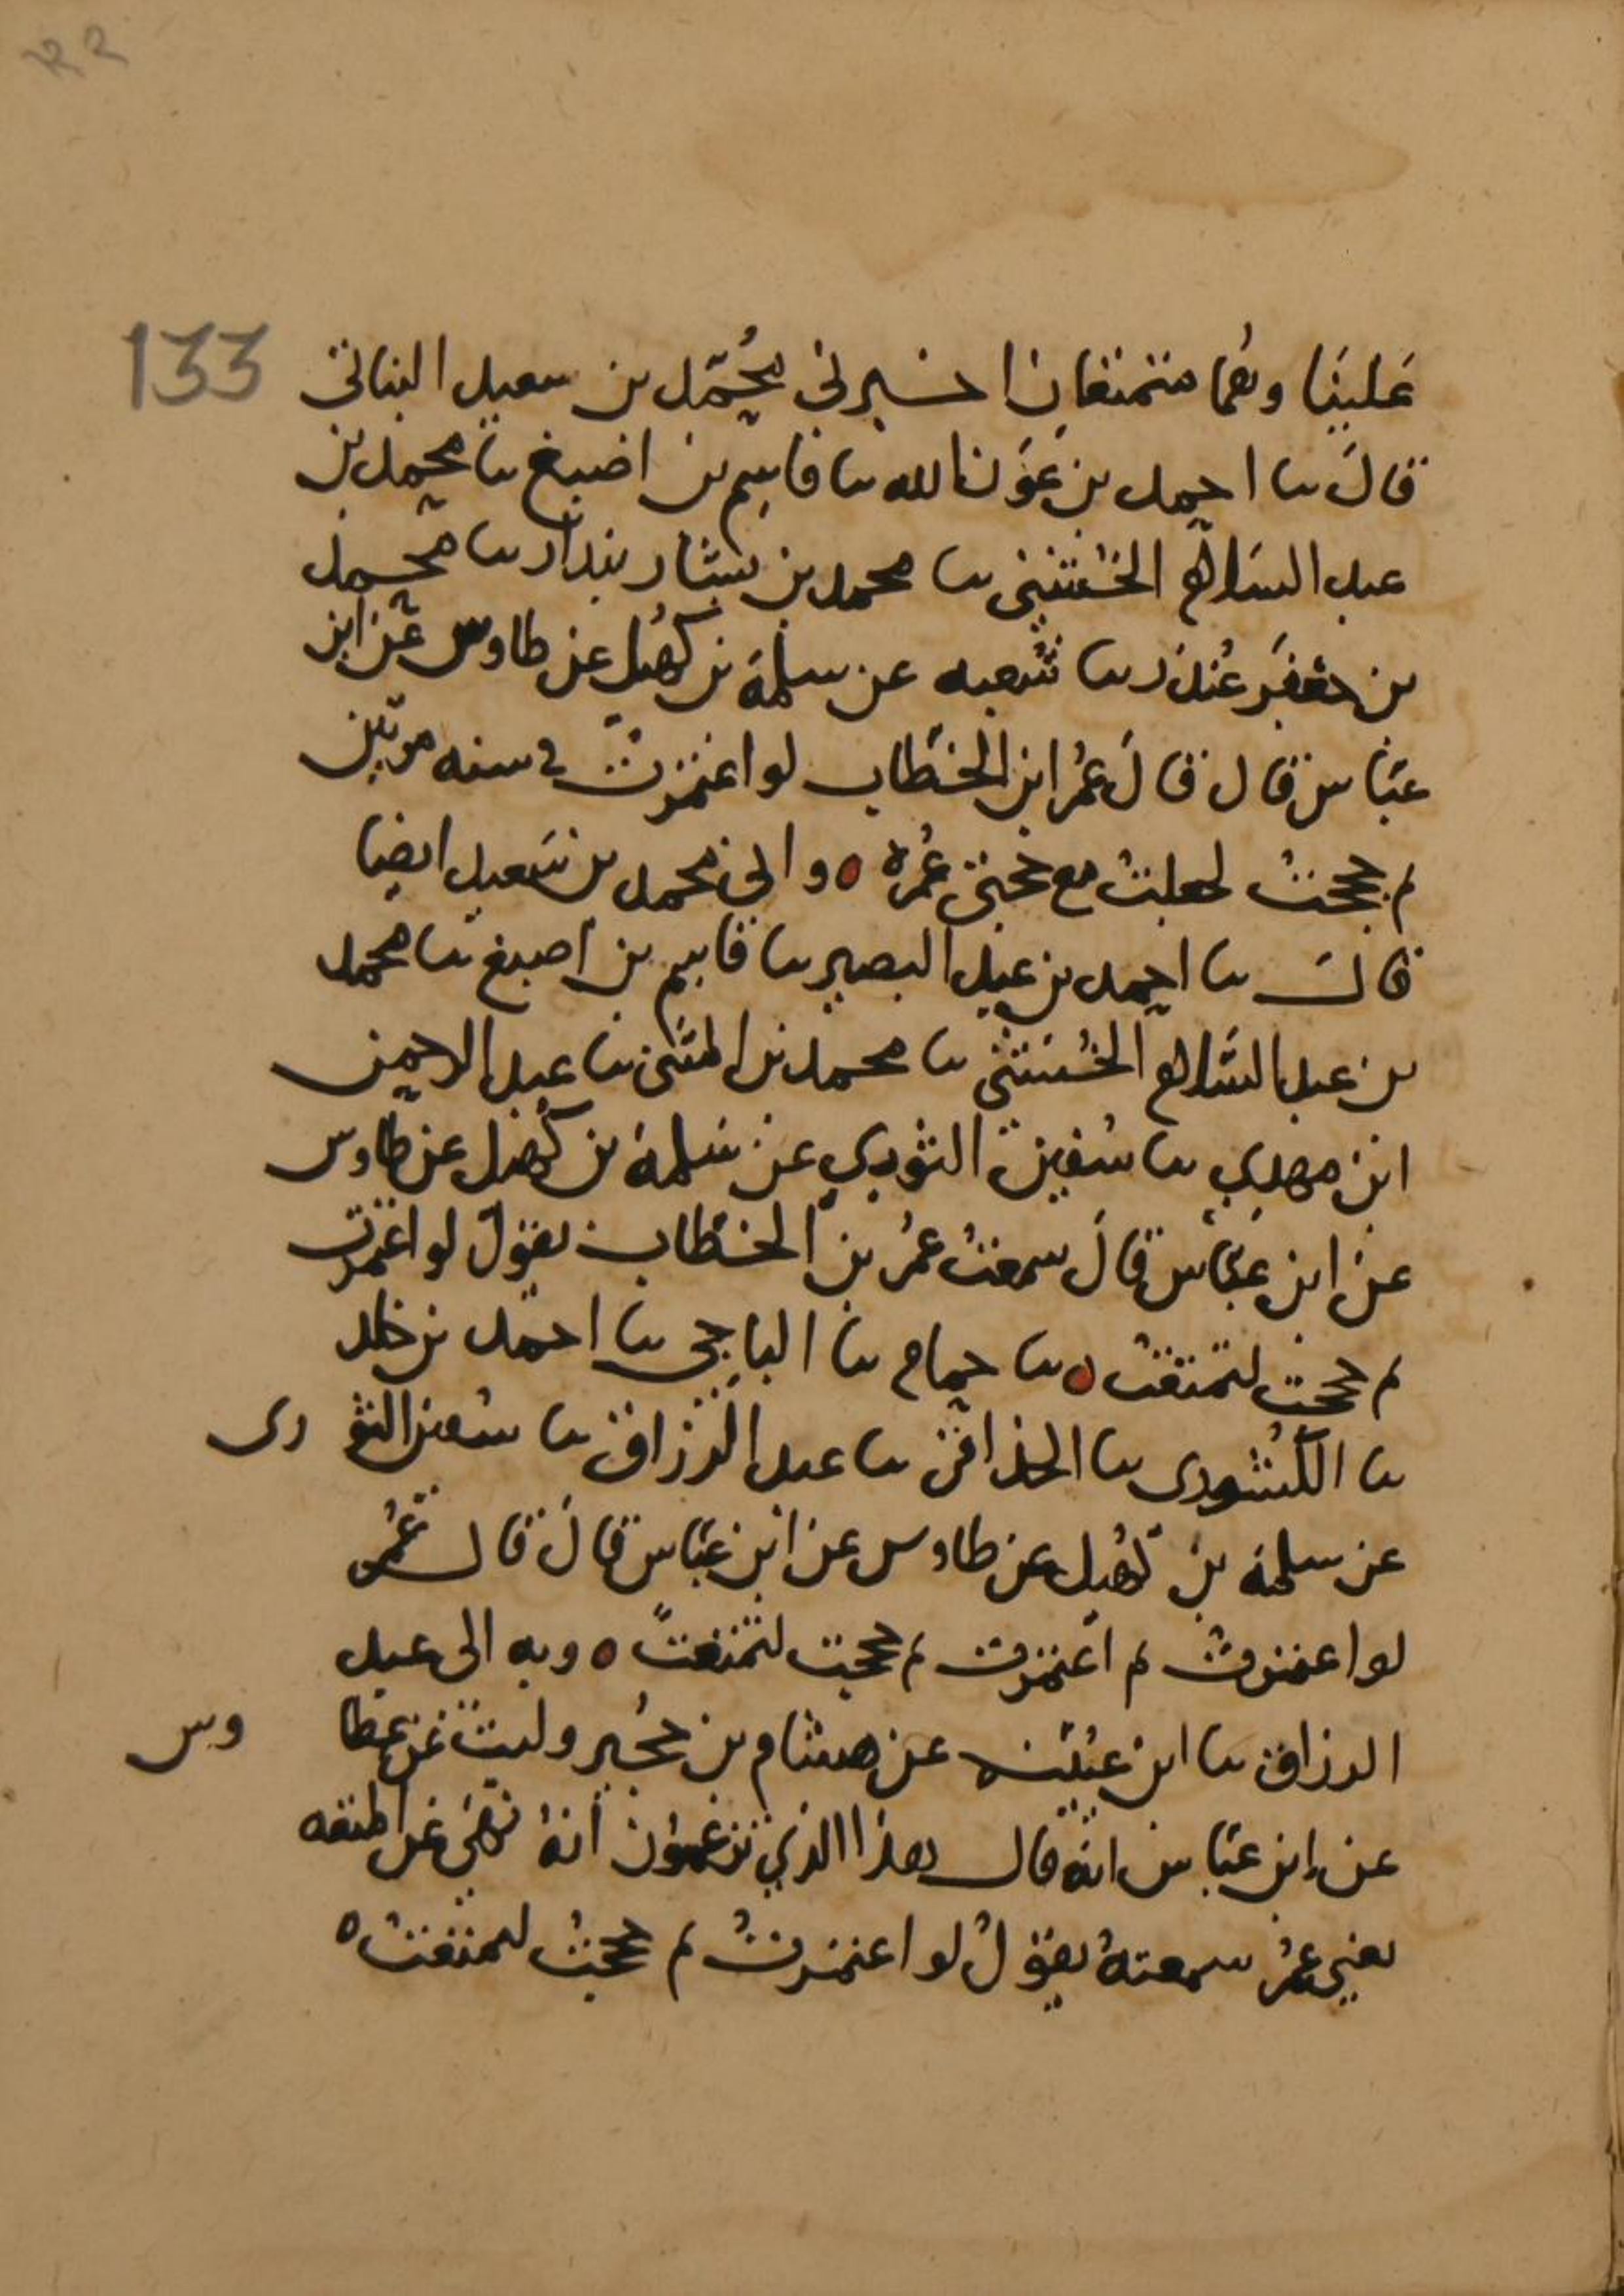 133
عَلينَا وهُما متمتعَان اخبرني مُحُمَّد بن سعيد النباتي
قالَ نا احمد بن عَوْن الله نا قاسم بن اصبغ نا محمد بن
عبد السَلام الخُشَنِي نا محمد بن بشار بندار نا محمد
بن جعْفَر غُندَر نا شعبه عن سلمَة بن كُهَيل عن طاوس عَن ابن
عبَّاس قال قالَ عُمرُ ابن الخطَّاب لو اعتمرتُ في سنه مرتين
ثم حججتُ لجعلتُ مع حجتي عُمرَة ٥ وانى محمد بن سَعيد ايضا
قالَ نا احمد بن عبد البصير نا قاسم بن اصبغ نا محمد
بن عبد السَّلام الخُشَنِي نا محمد بن المثَنى نا عبد الرحمن
ابن مهدي نا سُفين الثوري عن سَلمة بن كُهَيل عن طاوس
عن ابن عَبَّاس قالَ سمعتُ عُمرُ بن الخطَّاب يقولُ لو اعتمرت
ثم حججت لتمتعْتُ ٥ نا حمام نا الباجي نا احمد بن خلد
نا الكَشْوَرى نا الحذاقى نا عبد الرزاق نا سُفين الثو رى
عن سلمة بن كُهَيل عن طاوس عن ابن عبَّاس قالَ قالَ عُمر
لو اعتمرتُ ثم اعتمرت ثم حججت لتمتعْتُ ٥ وبه الى عبد
الرزاق نا ابن عيُينه عن هشام بن حُجَير وليث عن عطا وس
عن ابن عبَّاس انهُ قال هذا الذي تزعمون انهُ نَهَى عَن المتعه
يعني عُمَرُ سمعتهُ يقولُ لو اعتمرتُ ثم حججتُ لتمتعْتُ ٥